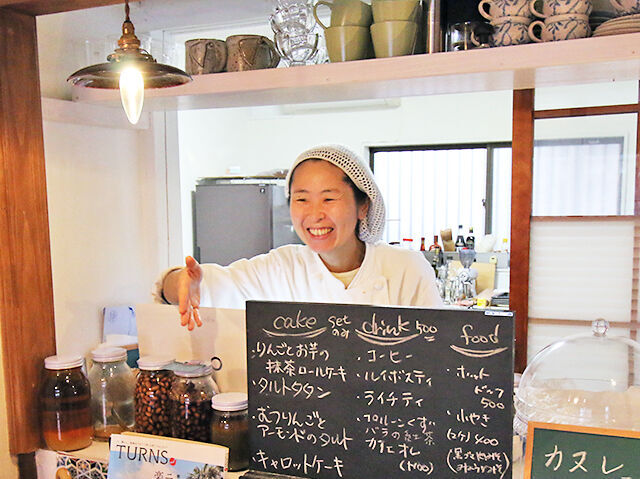 cake set のみ
・りんごとお芋の
抹茶ロールケーキ
・タルトタタン
・むつりんごと
アーモンドのタルト
・キャロットケーキ
drink 500
・コーヒー
・ルイボスティ
・ライチティ
・プルーンくず
バラの紅茶
カフェオレ
food
・ホット
ドッグ
500
・おやき
(2ケ) 400
TURNS
カヌレ